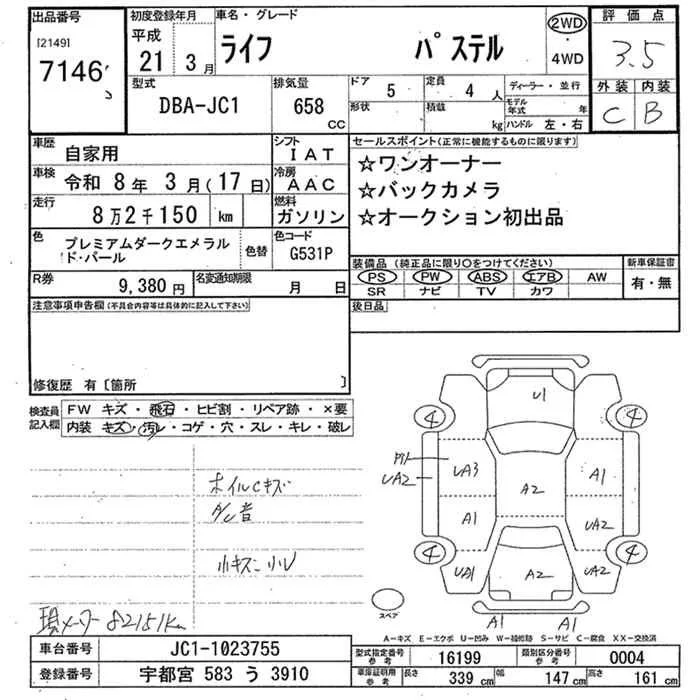 出品番号
[2149]
7146
初度登録年月
平成
21 3 月
車名・グレード
ライフ パステル
2WD
・
4WD
評価点
3.5
外装 内装
C B
型式
DBA-JC1
排気量
658 CC
ドア 5
定員 4 人
形状
積載 kg
ディーラー・並行
モデル年式 年
ハンドル 左・右
車歴
自家用
シフト
IAT
車検
令和 8 年 3 月(17 日)
冷房
AAC
走行
8 万 2 千 150 km
燃料
ガソリン
色
プレミアムダークエメラルド・パール
色替
色コード
G531P
R券
9,380 円
名変通知期限
月 日
セールスポイント(正常に機能するものに限ります)
☆ワンオーナー
☆バックカメラ
☆オークション初出品
装備品(純正品に限り〇をつけてください)
PS PW ABS エアB AW
SR ナビ TV カワ
新車保証書
有・無
後日品
注意事項申告欄(不具合内容等は具体的に記入して下さい)
修復歴 有〔箇所 〕
検査員記入欄
FW キズ・飛石・ヒビ割・リペア跡・×要
内装 キズ・汚レ・コゲ・穴・スレ・キレ・破レ
ホイルCキズ
A/C音
小キズ 小U
現メーター 82151km
U1
4 4
UA3
UA2
A1
A2
A1
UA2
4 4
UA1
A2
UA2
A1 A1
スペア
A-キズ E-エクボ U-凹み W-補修跡 S-サビ C-腐食 XX-交換済
車台番号
JC1-1023755
登録番号
宇都宮 583 う 3910
型式指定番号 参考
16199
類別区分番号 参考
0004
車庫証明用 参考
長さ 339 cm
幅 147 cm
高さ 161 cm